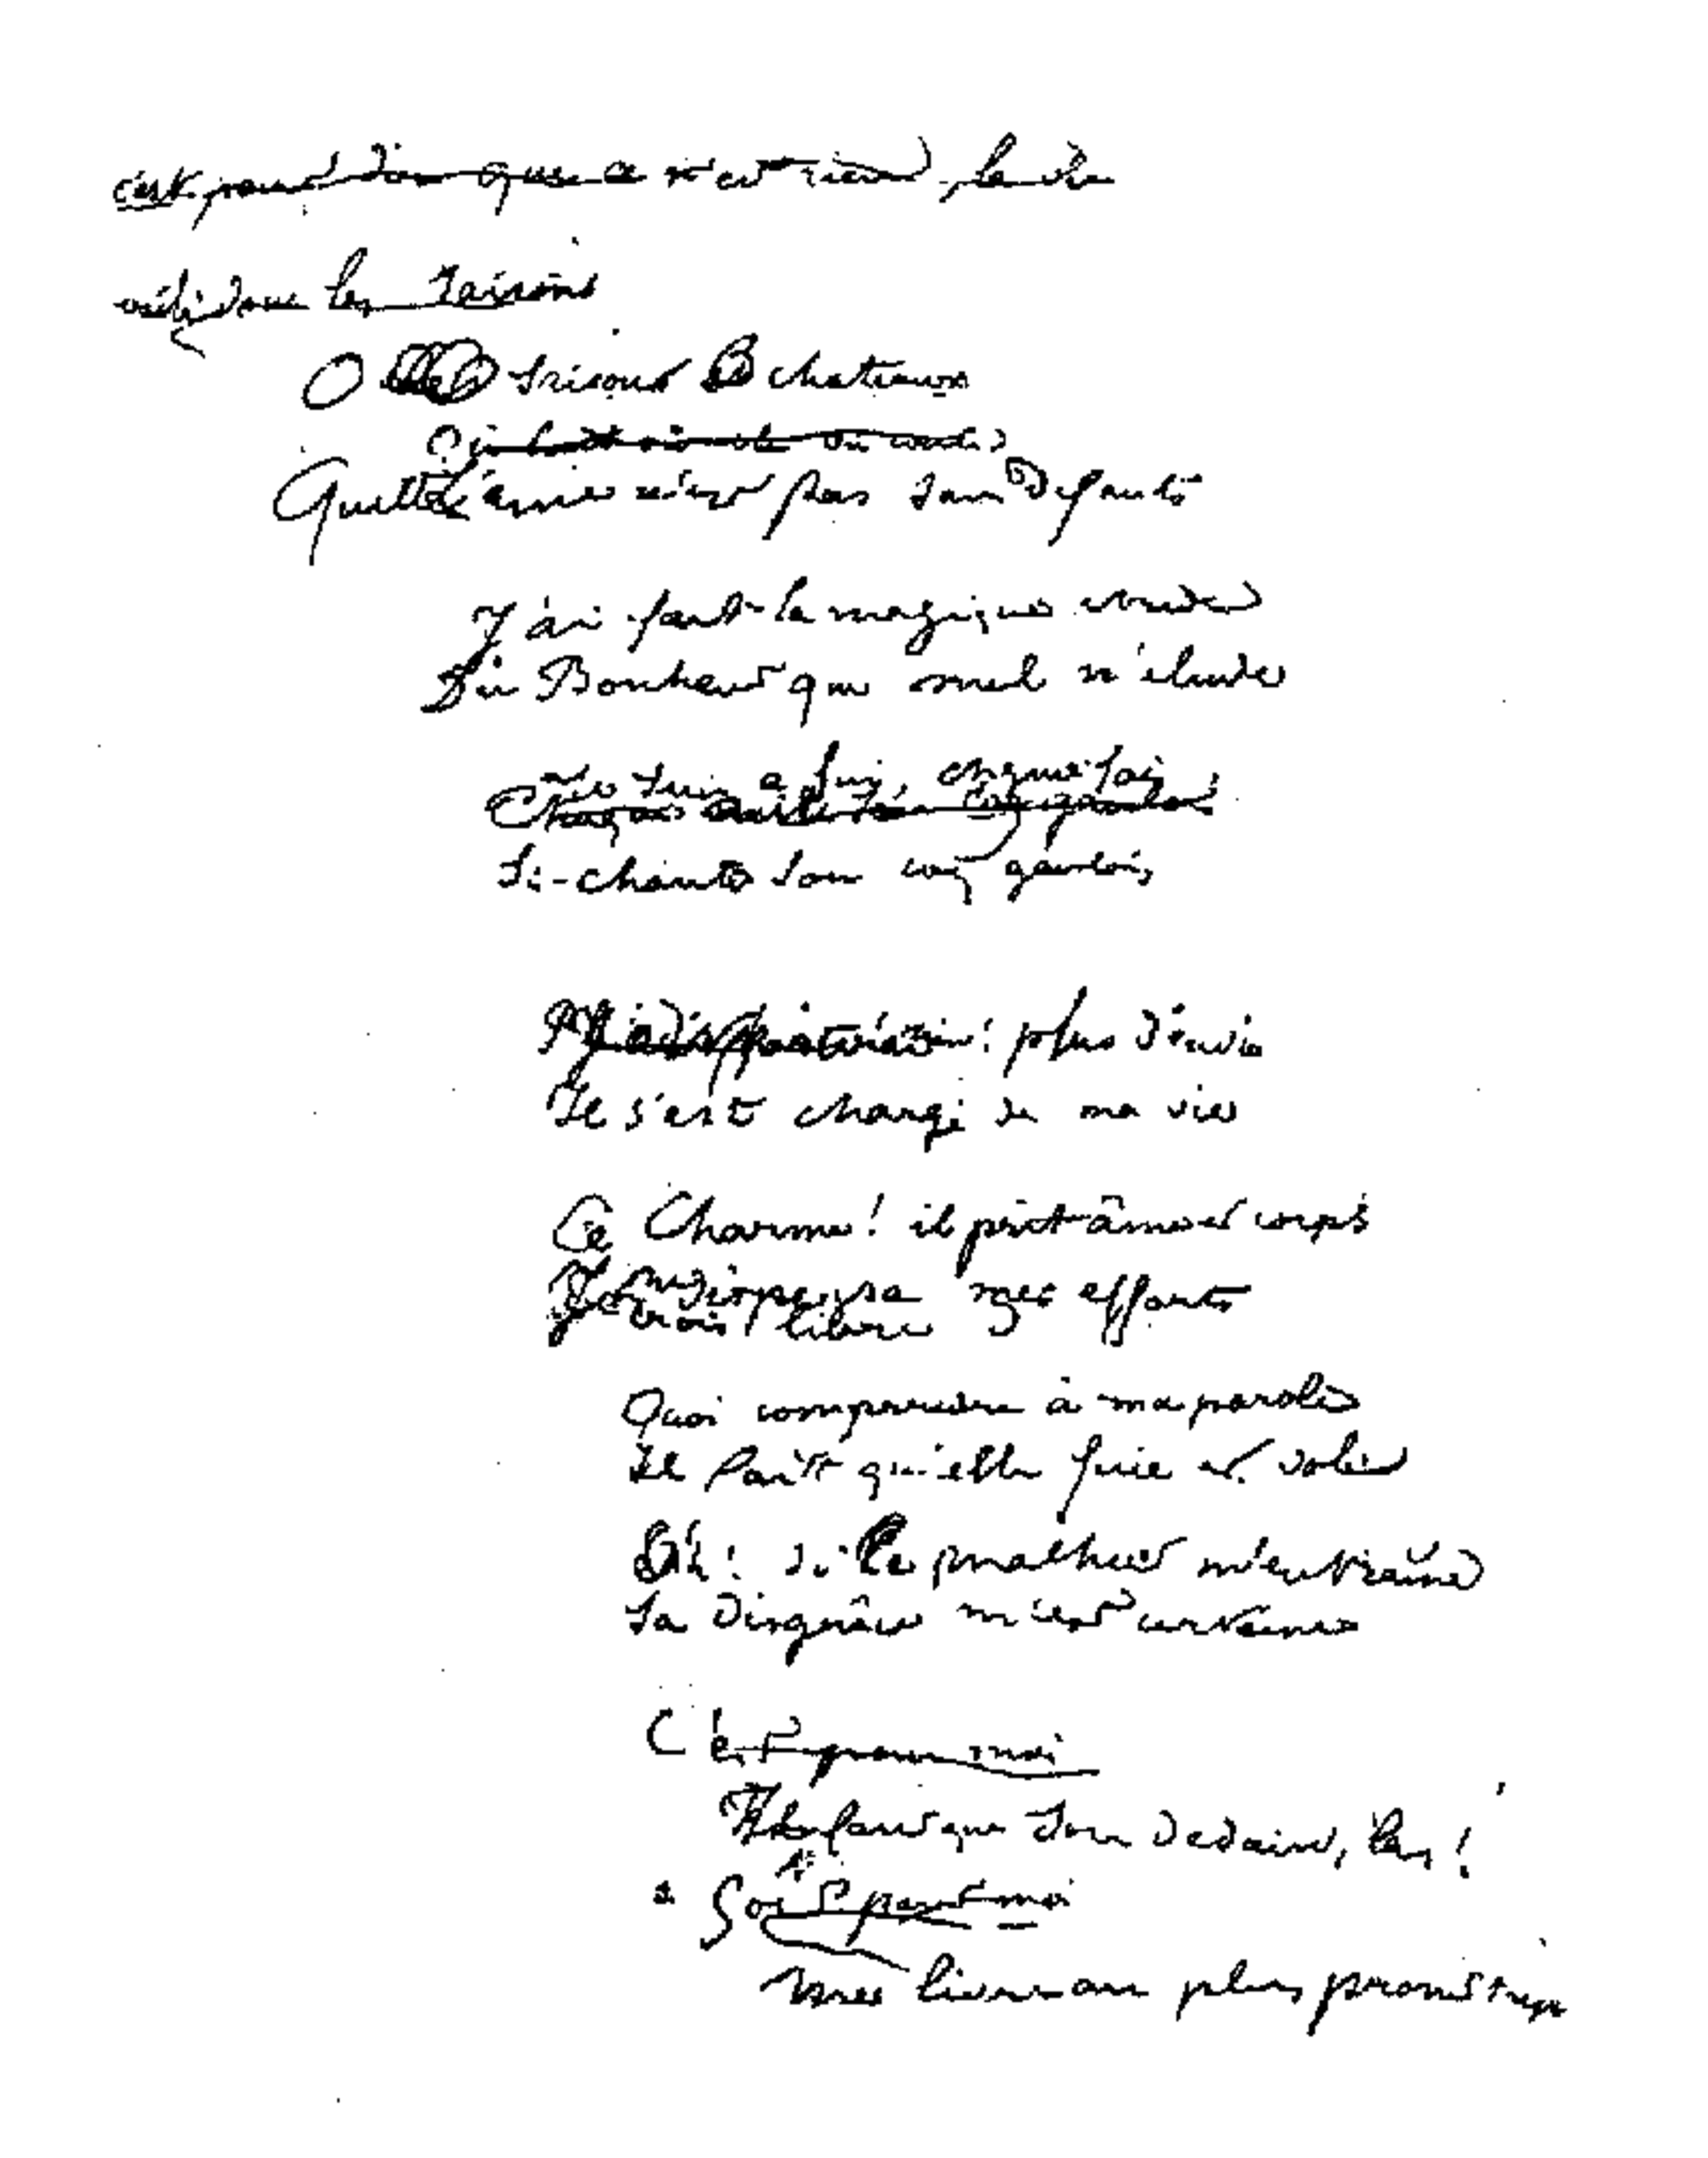 c'est pour dire que ce n'est rien, la vie
voilà donc les Saisons
O Saisons chateaux
Où court où vole où coule
Quelle âme n'est pas sans défauts
J'ai fait la magique etude
Du Bonheur que nul n'elude
Je suis à lui, chaque fois
Chaque
Si chante son coq gaulois
Mais je n'aurai plus d'envie
Il s'est chargé de ma vie
Ce Charme! il prit âme et corps
Je me crois libre
dispersa mes efforts
Quoi comprendre à ma parole
Il fait qu'elle fuie et vole
Et si le malheur m'entraîne
Sa disgrâce m'est certaine
C'est pour moi
Il faut que son dedain, las!
Soit pour moi
Me livre au plus prompt trépas